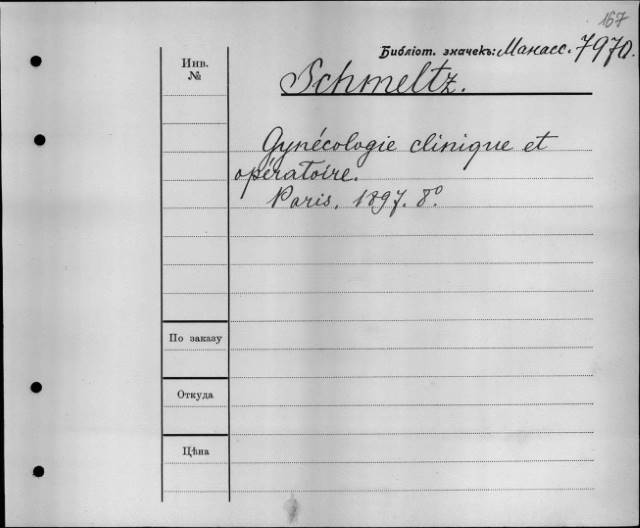 167
Библіот. значекъ: Манасс. 7970.
Инв.
№
Schmeltz.
Gynécologie clinique et
opératoire.
Paris, 1897. 8º
По заказу
Откуда
Цѣна